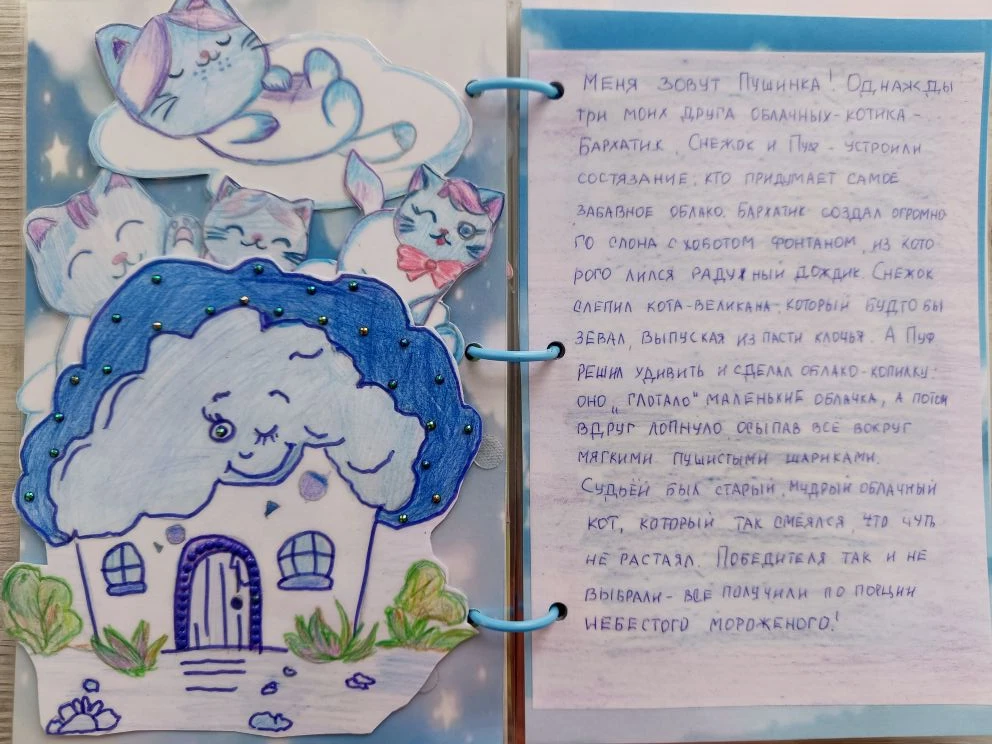 Меня зовут Пушинка! Однажды
три моих друга облачных-котика-
Бархатик, Снежок и Пуф - устроили
состязание: кто придумает самое
забавное облако. Бархатик создал огромно
го слона с хоботом фонтаном, из кото
рого лился радужный дождик. Снежок
слепил кота-великана, который будто бы
зевал, выпуская из пасти клочья. А Пуф
решил удивить и сделал облако-копилку:
оно „глотало" маленькие облачка, а потом
вдруг лопнуло осыпав всё вокруг
мягкими пушистыми шариками.
Судьёй был старый, мудрый облачный
кот, который так смеялся, что чуть
не растаял. Победителя так и не
выбрали - все получили по порции
небестого мороженого!